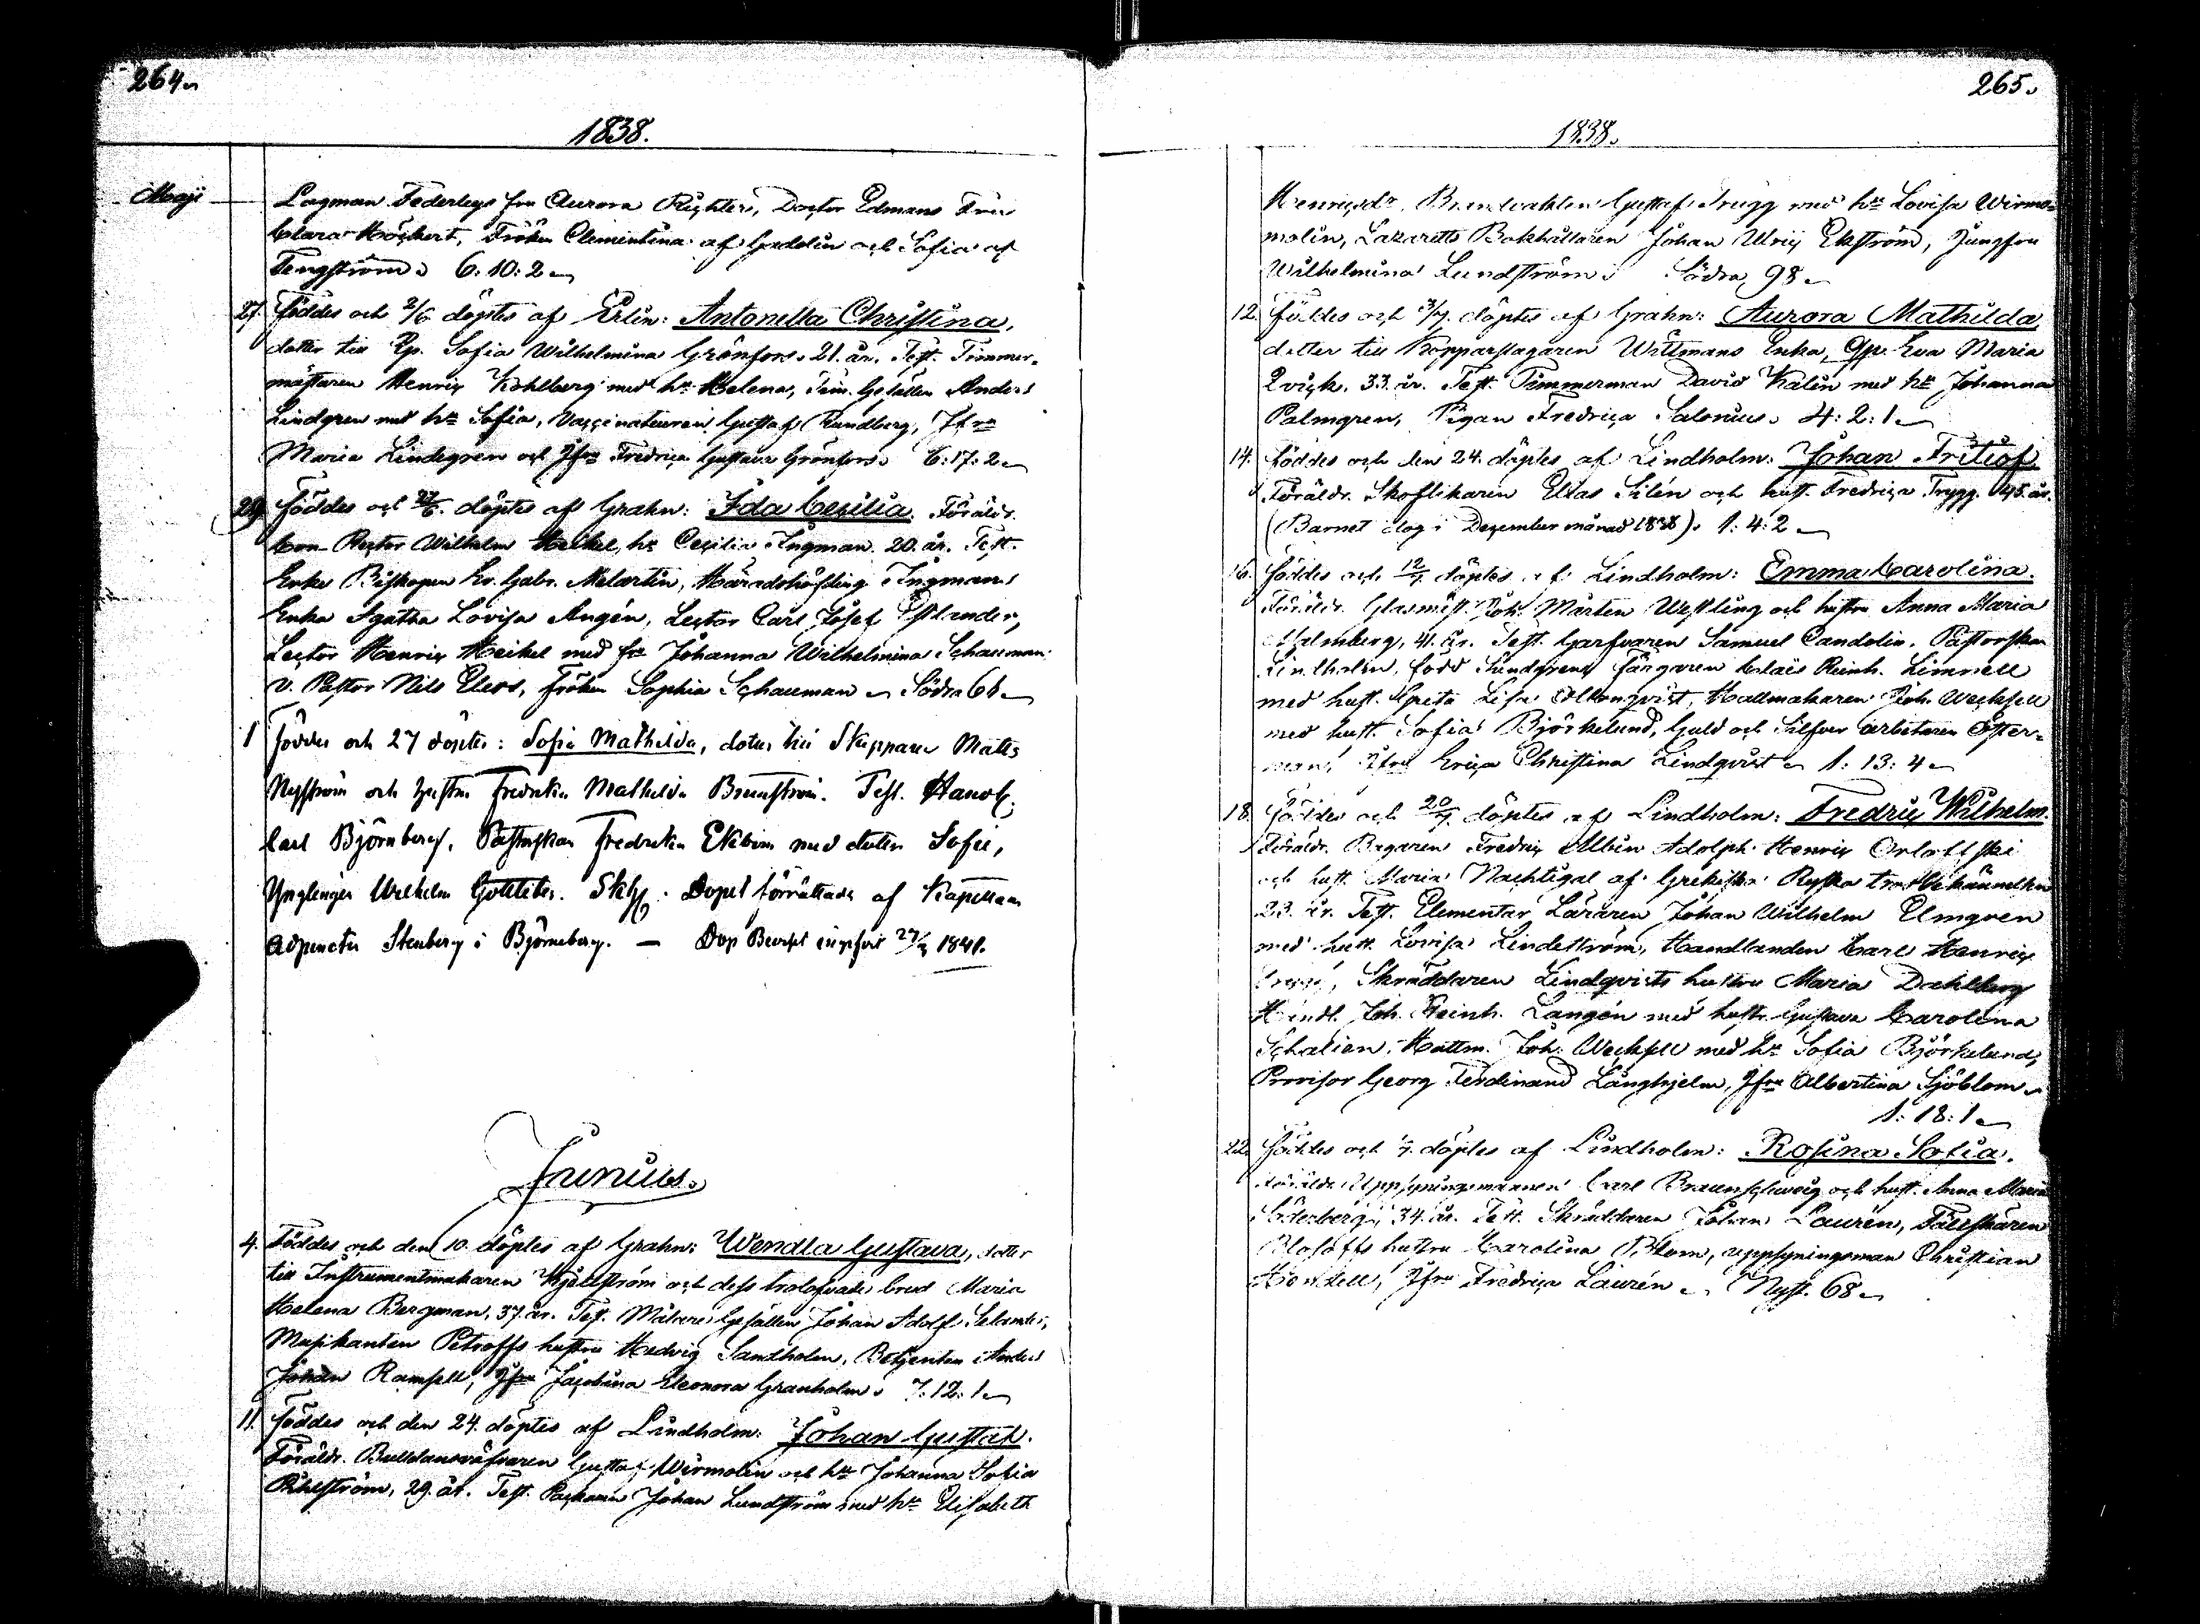 264.
1838.
Maji
Lagman Federleys fru Aurora Richter, Doctor Edmans Fru
Clara Höckert, Fröken Clementina af Gadolin och Sofia af
Tengström. 6: 10: 2
27. Föddes och 2/6 döptes af Erlin: Antonetta Christina,
dotter till Qp. Sofia Wilhelmina Grönfors. 21. år. Test. Timmer-
mästaren Henric Kohlberg med hu Helena, Tim. Gesällen Anders
Lindgren med hu Sofia, Vaccinateuren Gustaf Rundberg, Jfru
Maria Lindegren och Jfru Fredrica Gustava Grönfors. 6: 17: 2
29. Föddes och 27/6 döptes af Grahn: Ida Cecilia. Föräldr.
Con Rector Wilhelm Heikel, hu Cecilia Ingman. 20. år. Test.
Enke Biskopen Er. Gabr. Melartin, Häradshöfding Ingmans
Enka Agatha Lovisa Angén, Lector Carl Josef Estlander,
Lector Henric Heikel med fru Johanna Wilhelmina Schauman.
V. Pastor Nils Eless, fröken Sophia Schauman Södra 66
1 Föddes och 27 döptes: Sofia Mathilda, dotter till Skepparen Matts
Nyström och hustru Fredrika Mathilda Brunström. Test. Handl.
Carl Björnberg, Pastorskan Fredrika Ekbom med dotter Sofie,
Ynglingen Wilhelm Gottleben. Dopet förrättades af Kapellans
Adjuncten Stenberg i Björneborg. — Dop Beviset infördt 1841.
Junius.
4. Föddes och den 10. döptes af Grahn: Wendla Gustava, dotter
till Instrumentmakaren Kjällström och dess trolofvade brud Maria
Helena Bergman, 37. år. Test. Målare Gesällen Johan Adolf Selander,
Musikanten Petroffs hustru Hedvig Sandholm, Betjenten Anders
Johan Ramsell, Jfru Jacobina Eleonora Granholm. 7: 12: 1
11. Föddes och den 24. döptes af Lindholm: Johan Gustaf.
Föräldr. Buldansväfvaren Gustaf Wirmolin och hu Johanna Sofia
Pihlström, 29. år. Test. Packaren Johan Lundström med hu Elisabeth
265.
1838.
Henricsdr. Brandvakten Gustaf Trygg med hu Lovisa Wirmo-
molin, Lazaretts Bokhållaren Johan Ulric Ekström, Jungfru
Wilhelmina Lundström. Södra 98
12. Föddes och 3/7. döptes af Grahn: Aurora Mathilda
dotter till Kopparslagaren Wittmans Enka, Qp. Eva Maria
Qvick. 33. år. Test. Timmerman David Kalin med hu Johanna
Palmgren, Pigan Fredrica Salonius. 4: 2: 1
14. Föddes och den 24. döptes af Lindholm: Johan Fritiof.
Föräldr. Skoflikaren Elias Silén och hust. Fredrica Trygg. 45. år.
(Barnet dog i December månad 1838). 1: 4: 2
16. Föddes och 12/7 döptes af Lindholm: Emma Carolina.
Föräldr. Glasmäst. Joh. Mårten Westling och hustru Anna Maria
Malmberg, 41. år. Test. Garfvaren Samuel Candolin. Pastorskan
Lindholm, född Sundgren, färgaren Claës Reinh. Limnell
med hust. Greta Lisa Ahlonqvist, Hattmakaren Joh. Wecksell
med hust. Sofia Björkelund, Guld och Silfver arbetaren Öster-
man, Jfru Erica Christina Lindqvist 1: 13: 4
18. Föddes och 20/7. döptes af Lindholm: Fredric Wilhelm.
Föräldr. Bagaren Fredric Albin Adolph Henric Orloffski
och hust. Maria Nachtigal af Grekiska Ryska trosbekännelsen
23. år. Test. Elementar Läraren Johan Wilhelm Elmgren
med hust. Lovisa Lindeström, Handlanden Carl Henric
Skräddaren Lindqvists hustru Maria Dahlberg
Handl. Joh. Reinh. Langén med hustr. Gustava Carolina
Schalien, Hattm. Joh. Wecksell med hu Sofia Björkelund,
Provisor Georg Ferdinand Långhjelm, Jfru Albertina Sjöblom
1: 18: 1
22. Föddes och /7. döptes af Lindholm: Rosina Sofia.
Föräldr. Uppsyningsmannen Carl Braunschweig och hust. Anna Maria
Söderberg, 34. år. Test. Skräddaren Johan Laurén, Fältskären
Blosoffs hustru Carolina Blom, uppsyningsman Christian
Jfru Fredrica Laurén Nyst. 68